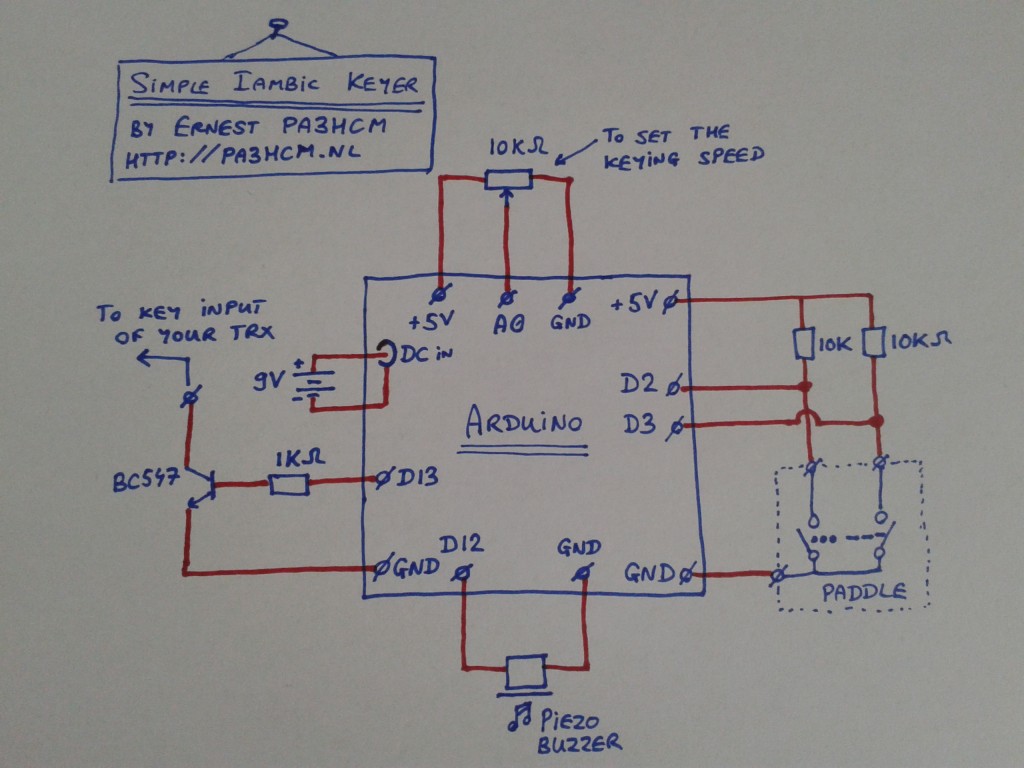 SIMPLE IAMBIC KEYER
BY ERNEST PA3HCM
HTTP://PA3HCM.NL
10KΩ
TO SET THE
KEYING SPEED
TO KEY INPUT
OF YOUR TRX
+5V
A0
GND
+5V
DC in
9V
+
-
10K
10KΩ
D2
D3
ARDUINO
BC547
1KΩ
D13
GND
D12
GND
GND
PADDLE
PIEZO
BUZZER